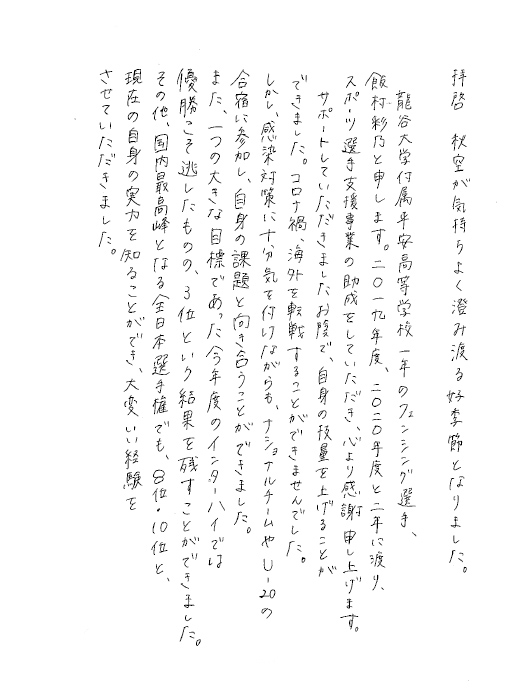 拝啓　秋空が気持ちよく澄み渡る好季節となりました。
龍谷大学付属平安高等学校一年のフェンシング選手、
飯村彩乃と申します。二〇一九年度、二〇二〇年度と二年に渡り、
スポーツ選手支援事業の助成をしていただき、心より感謝申し上げます。
サポートしていただきましたお陰で、自身の技量を上げることが
できました。コロナ禍、海外を転戦することができませんでした。
しかし、感染対策に十分気を付けながらも、ナショナルチームやU-20の
合宿に参加し、自身の課題と向き合うことができました。
また、一つの大きな目標であった今年度のインターハイでは
優勝こそ逃したものの、3位という結果を残すことができました。
その他、国内最高峰となる全日本選手権でも、8位・10位と、
現在の自身の実力を知ることができ、大変いい経験を
させていただきました。